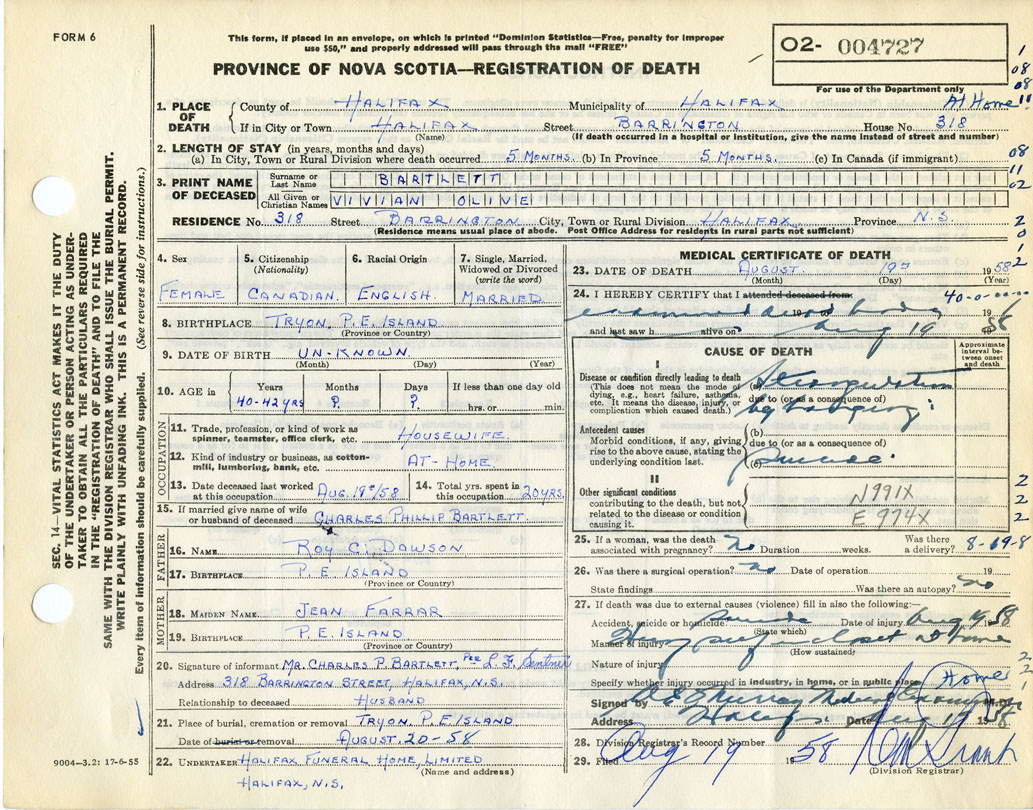 FORM 6
This form, if placed in an envelope, on which is printed "Dominion Statistics—Free, penalty for improper
use $50," and properly addressed will pass through the mail "FREE"
PROVINCE OF NOVA SCOTIA—REGISTRATION OF DEATH
02- 004727
For use of the Department only
1. PLACE OF DEATH
County of HALIFAX Municipality of HALIFAX At Home
If in City or Town HALIFAX Street BARRINGTON House No. 318
(Name) (If death occurred in a hospital or institution, give the name instead of street and number)
2. LENGTH OF STAY (in years, months and days)
(a) In City, Town or Rural Division where death occurred 5 MONTHS. (b) In Province 5 MONTHS. (c) In Canada (if immigrant)
3. PRINT NAME OF DECEASED
Surname or Last Name BARTLETT
All Given or Christian Names VIVIAN OLIVE
RESIDENCE No. 318 Street BARRINGTON City, Town or Rural Division HALIFAX Province N.S.
(Residence means usual place of abode. Post Office Address for residents in rural parts not sufficient)
1
08
08
11
08
11
02
2
0
2
2
SEC. 14—VITAL STATISTICS ACT MAKES IT THE DUTY
OF THE UNDERTAKER OR PERSON ACTING AS UNDER-
TAKER TO OBTAIN ALL THE PARTICULARS REQUIRED
IN THE "REGISTRATION OF DEATH" AND TO FILE THE
SAME WITH THE DIVISION REGISTRAR WHO SHALL ISSUE THE BURIAL PERMIT.
WRITE PLAINLY WITH UNFADING INK. THIS IS A PERMANENT RECORD.
Every item of information should be carefully supplied. (See reverse side for instructions.)
4. Sex
FEMALE
5. Citizenship
(Nationality)
CANADIAN.
6. Racial Origin
ENGLISH.
7. Single, Married,
Widowed or Divorced
(write the word)
MARRIED
8. BIRTHPLACE TRYON, P.E. ISLAND
(Province or Country)
9. DATE OF BIRTH UN-KNOWN
(Month) (Day) (Year)
10. AGE in
Years
40-42 YRS
Months
?
Days
?
If less than one day old
hrs. or min.
OCCUPATION
11. Trade, profession, or kind of work as
spinner, teamster, office clerk, etc. HOUSEWIFE.
12. Kind of industry or business, as cotton-
mill, lumbering, bank, etc. AT-HOME.
13. Date deceased last worked
at this occupation AUG. 19th/58
14. Total yrs. spent in
this occupation 20 YRS.
15. If married give name of wife
or husband of deceased CHARLES PHILLIP BARTLETT.
FATHER
16. NAME ROY C. DAWSON
17. BIRTHPLACE P. E ISLAND
(Province or Country)
MOTHER
18. MAIDEN NAME JEAN FARRAR
19. BIRTHPLACE P.E. ISLAND
(Province or Country)
20. Signature of informant MR. CHARLES P. BARTLETT, PER L. F.
Address 318 BARRINGTON STREET, HALIFAX, N.S.
Relationship to deceased HUSBAND
21. Place of burial, cremation or removal TRYON, P.E ISLAND
Date of burial or removal AUGUST. 20-58
22. UNDERTAKER HALIFAX FUNERAL HOME, LIMITED
(Name and address)
HALIFAX, N.S.
9004—3.2: 17-6-55
MEDICAL CERTIFICATE OF DEATH
23. DATE OF DEATH AUGUST 19th 1958
(Month) (Day) (Year)
24. I HEREBY CERTIFY that I attended deceased from: 40-0-00-00
examined dead body 19
and last saw h alive on Aug 19 1958
CAUSE OF DEATH
Approximate
interval be-
tween onset
and death
I
Disease or condition directly leading to death
(This does not mean the mode of
dying, e.g., heart failure, asthenia,
etc. It means the disease, injury, or
complication which caused death.)
(a) Strangulation
due to (or as a consequence of)
by hanging:
Antecedent causes
Morbid conditions, if any, giving
rise to the above cause, stating the
underlying condition last.
(b)
due to (or as a consequence of)
(c) Suicide.
II
Other significant conditions
contributing to the death, but not
related to the disease or condition
causing it.
N991X
E 974X
2
2
2
25. If a woman, was the death
associated with pregnancy? No Duration weeks. Was there
a delivery? 8-69-8
26. Was there a surgical operation? No Date of operation 19
State findings Was there an autopsy? No
27. If death was due to external causes (violence) fill in also the following:—
Accident, suicide or homicide Suicide Date of injury Aug 19 1958
(State which)
Manner of injury Hung self in closet at home
(How sustained)
Nature of injury
Specify whether injury occurred in industry, in home, or in public place Home
2
2
1
Signed by Murray Medical Examiner
Address Halifax Date Aug 19 1958
28. Division Registrar's Record Number
29. Filed Aug 19 1958
(Division Registrar)